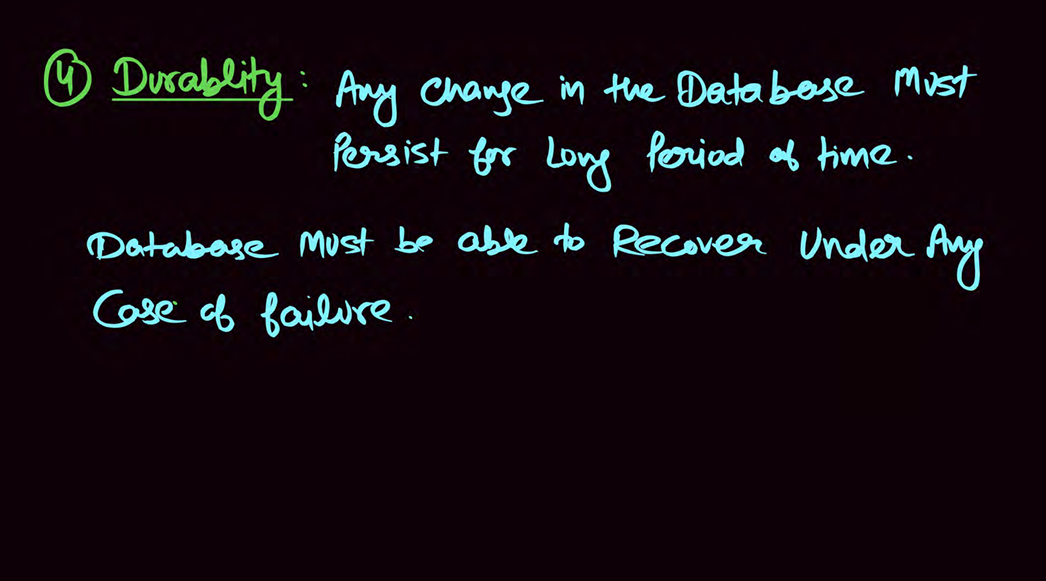 ④ Durablity : Any change in the Database Must
Persist for Long Period of time.
Database Must be able to Recover Under Any
Case of failure.